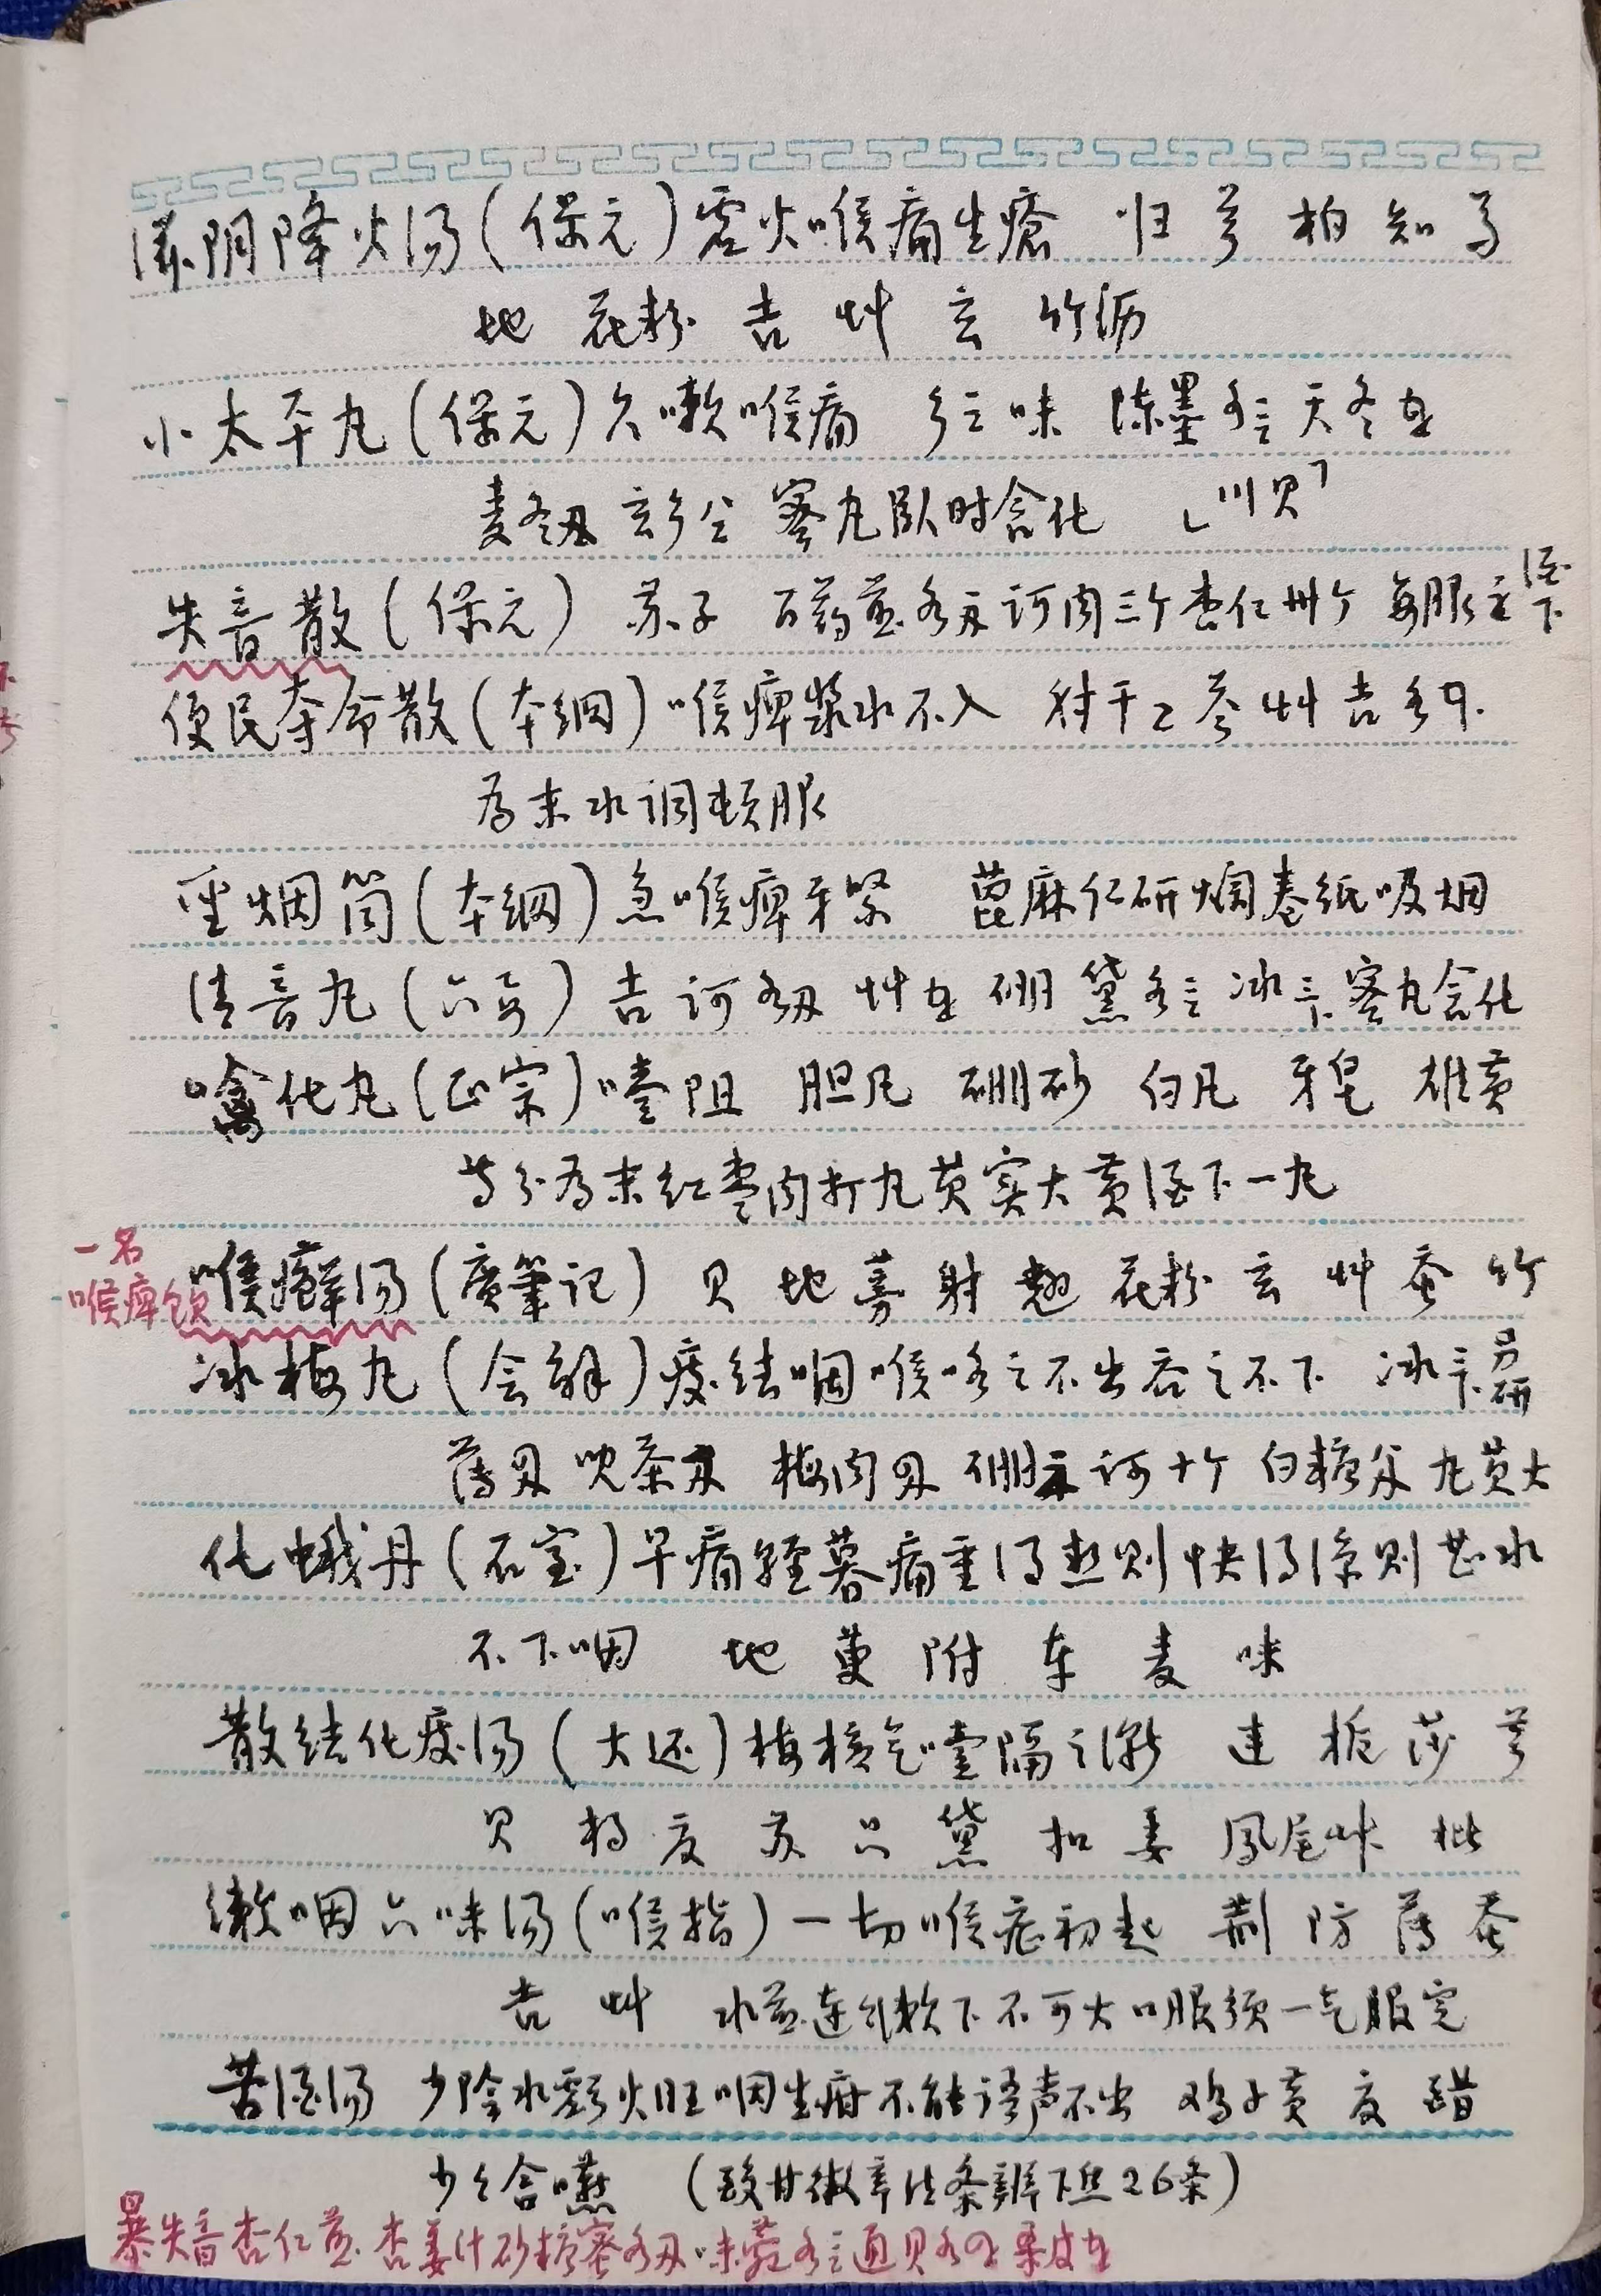 滋阴降火汤(保元)虚火喉痛生疮 归 芍 柏 知 母
地 花粉 吉 艸 玄 竹沥
小太平丸(保元)久嗽喉痛 味 陈墨 天冬
麦冬 蜜丸卧时含化 川贝
失音散(保元) 苏子 百药煎各 诃肉三个 杏仁卅个 每服 酒下
便民夺命散(本綱)喉痺浆水不入 射干 艸 吉
为末水调顿服
圣烟筒(本綱)急喉痺牙紧 蓖麻仁研烂卷纸吸烟
清音丸(六 ) 吉 诃 艸 硼 黛 冰 蜜丸含化
噙化丸(正宗)噎阻 胆凡 硼砂 白凡 牙皂 雄黄
等分为末红枣肉打丸芡实大黄酒下一丸
一名
喉痺饮
喉癣汤(廣筆记) 贝 地 蒡 射 翘 花粉 玄 艸 蚕 竹
冰梅丸(会解)痰结咽喉咯之不出吞之不下 冰 另研
薄 儿茶 梅肉 硼 诃十个 白糖 丸芡大
化蛾丹(石室)早痛轻暮痛重得热则快得凉则 水
不下咽 地 萸 附 车 麦 味
散结化痰汤(大还)梅核气噎隔之渐 连 栀 莎 芎
贝 夏 苏 只 黛 扣 姜 鳳尾艸 枇
漱咽六味汤(喉指)一切喉症初起 荆 防 薄 蚕
吉 艸 水煎连漱下不可大口服须一气服完
苦酒汤 少阴水亏火旺咽生疮不能语声不出 鸡子黄 夏 醋
少少含嚥 (酸甘微辛法条辨下焦26条)
暴失音杏仁煎 杏姜汁砂糖蜜 味 通贝 桑皮